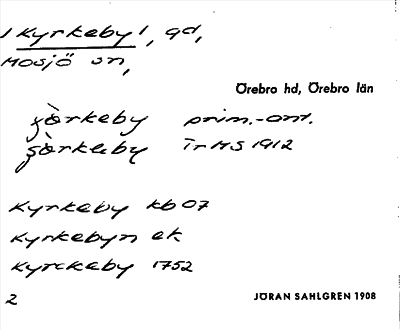 ! Kyrkeby !, gd,
Mosjö sn,
Örebro hd, Örebro län
kyrkeby prim.-ont.
TrMS 1912
Kyrkeby kb 07
Kyrkebyn ek
Kyrckeby 1752
2
JÖRAN SAHLGREN 1908